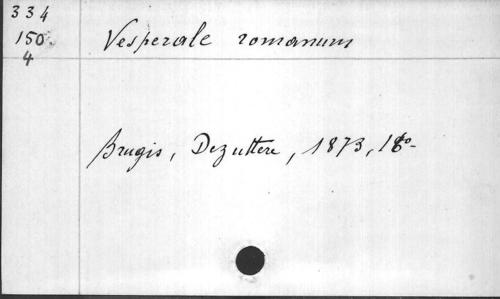 334
150
4
Vesperale romanum
Brugis, Dezuttere, 1873, 18o-